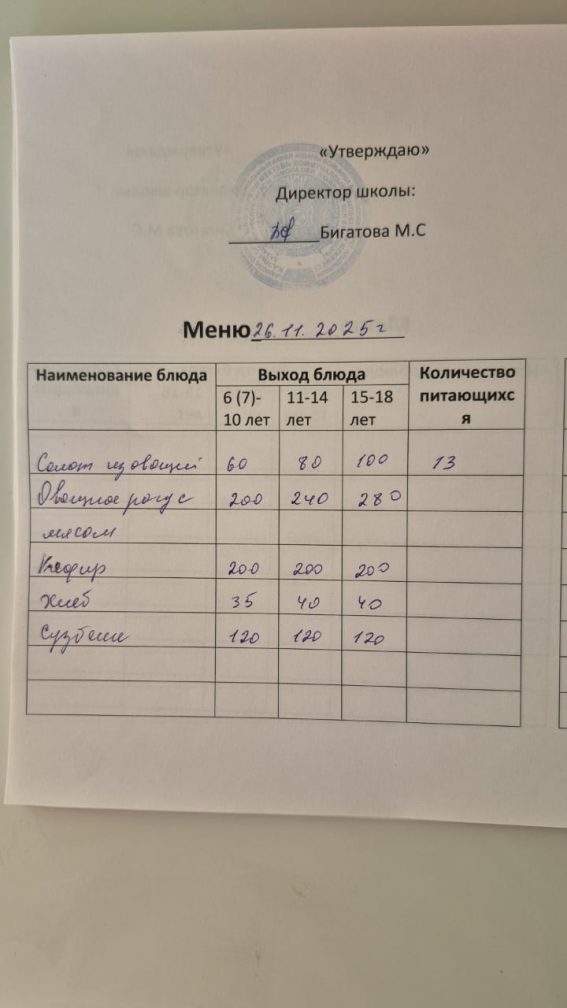 «Утверждаю»
Директор школы:
Бигатова М.С
Меню 26.11.2025г
Наименование блюда Выход блюда Количество питающихся
6 (7)-10 лет 11-14 лет 15-18 лет
Салат из овощей 60 80 100 13
Овощное рагу с 200 240 280
мясом
Кефир 200 200 200
Хлеб 35 40 40
Сузбеше 120 120 120